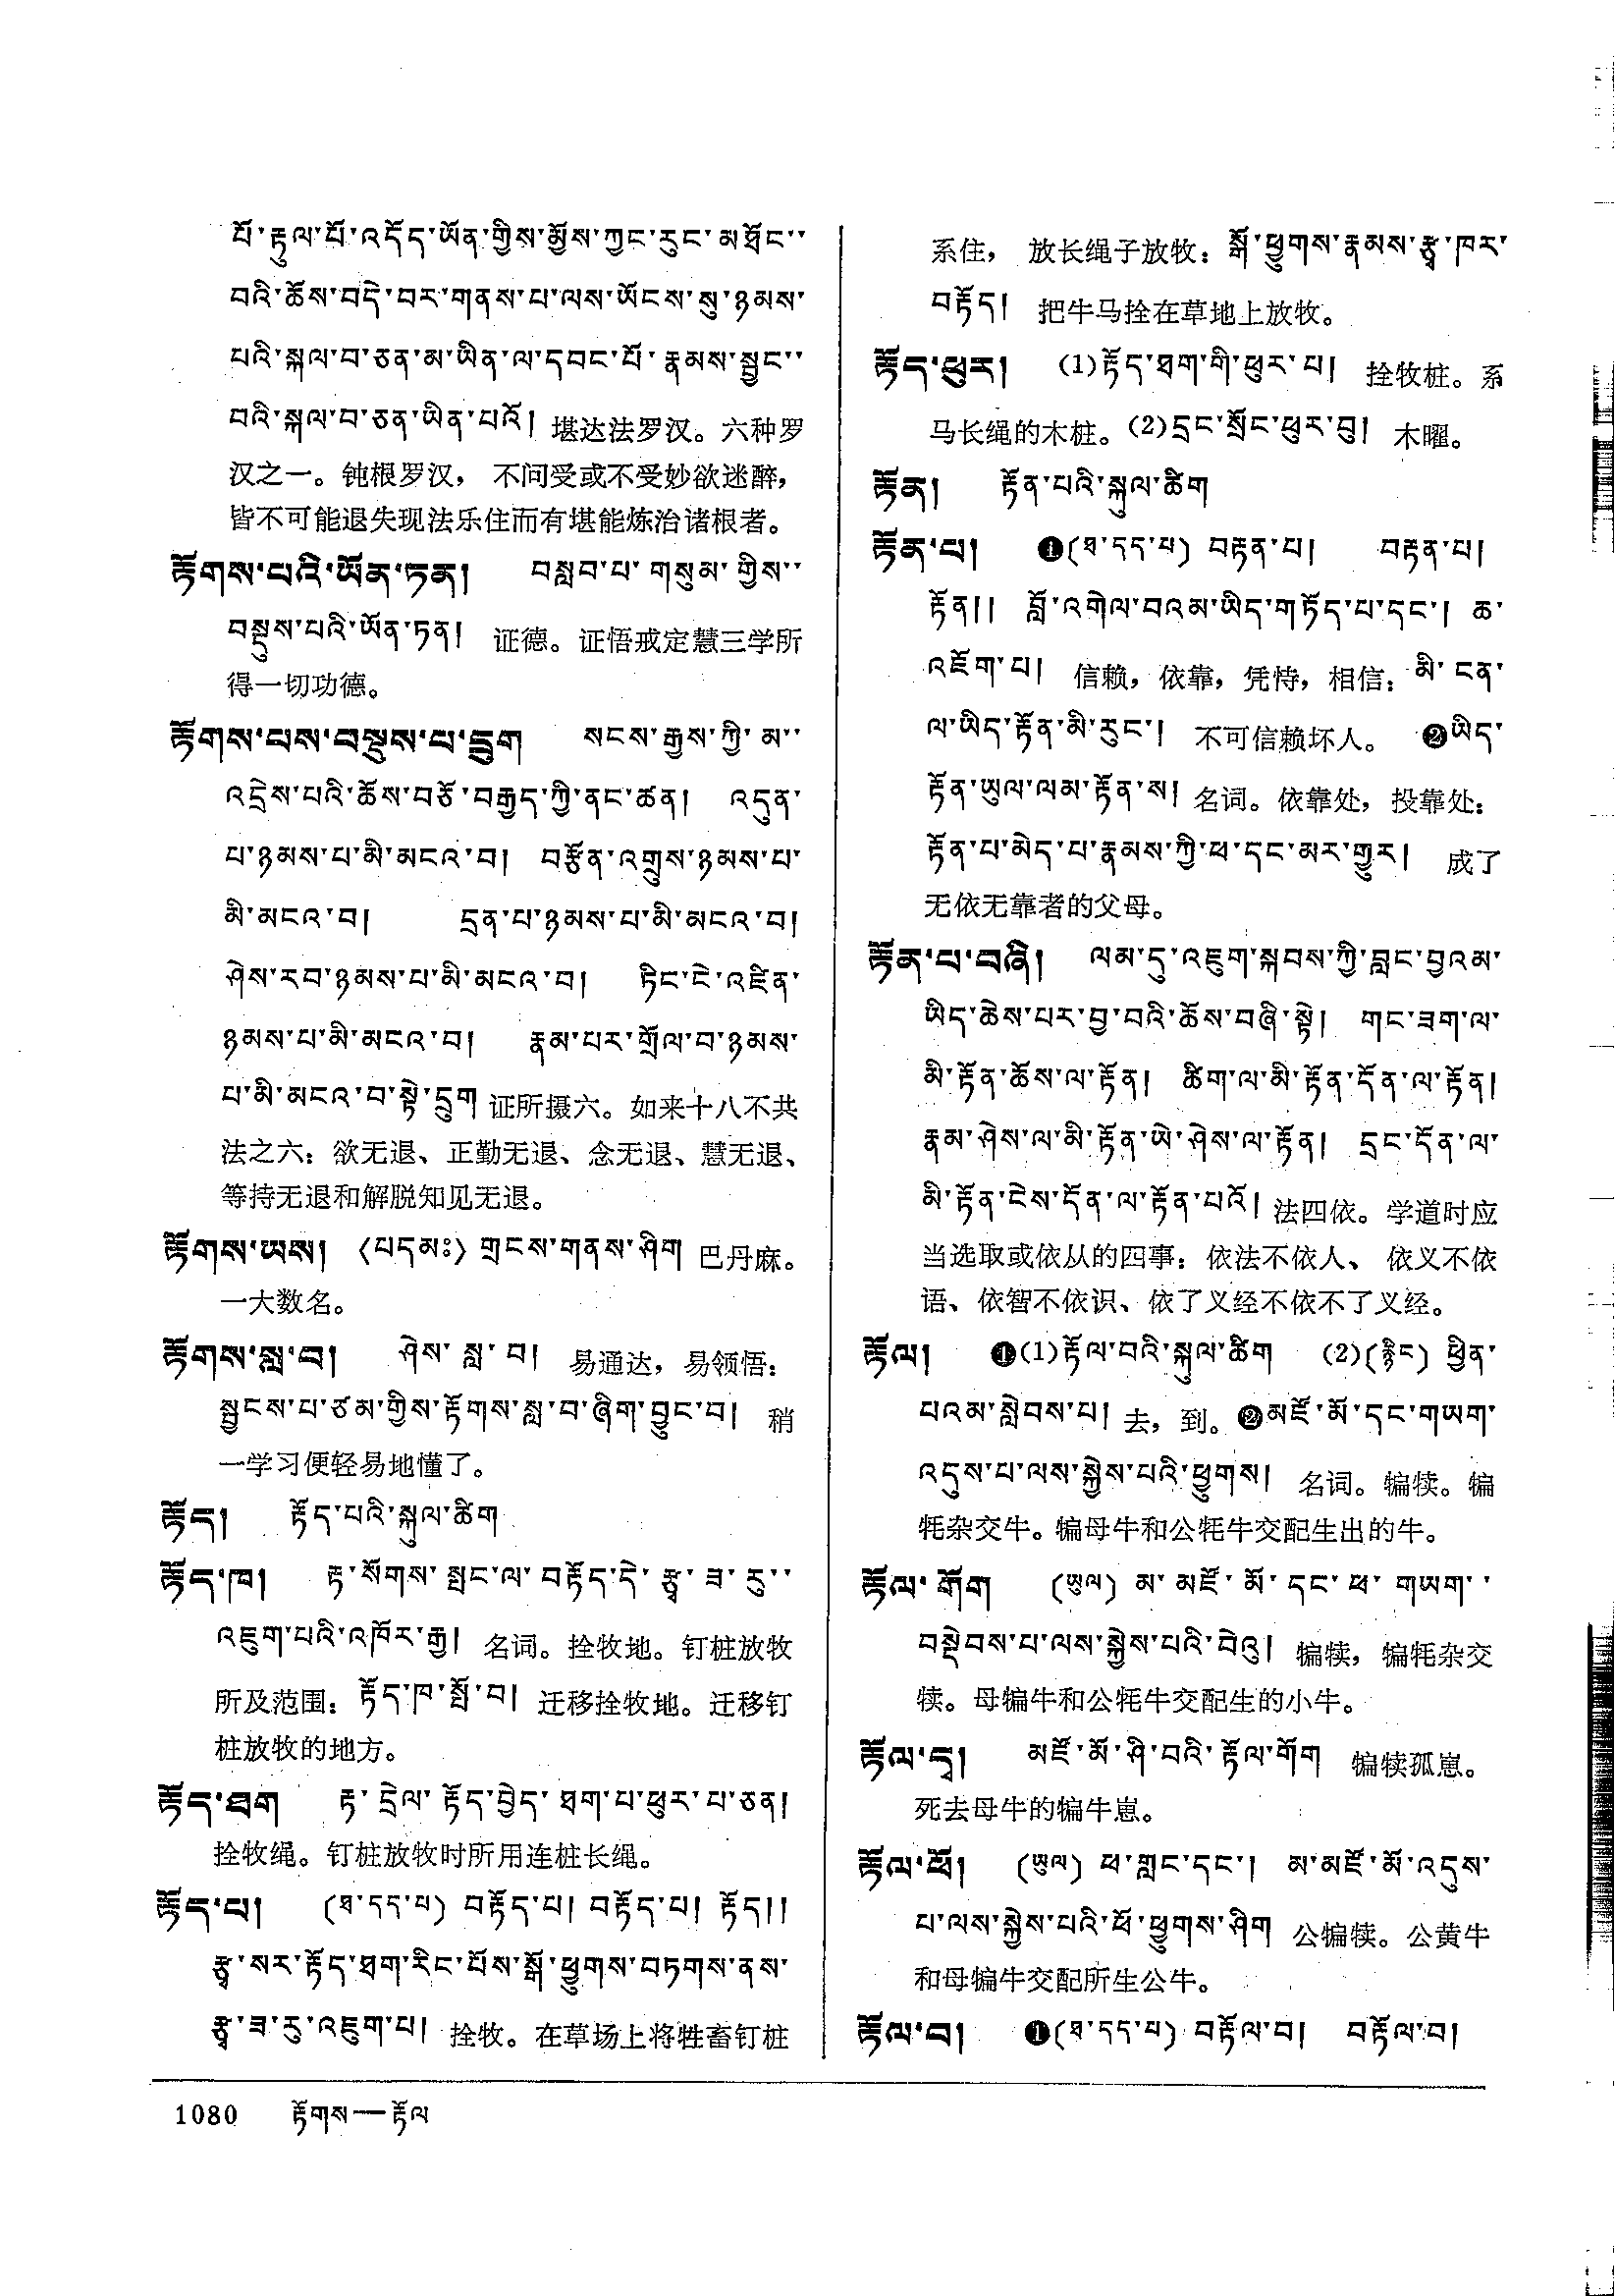 པོ་རྟུལ་པོ་འདོད་ཡོན་གྱིས་མྱོས་ཀྱང་རུང་མཐོང་་
བའི་ཆོས་བདེ་བར་གནས་པ་ལས་ཡོངས་སུ་ཉམས་
པའི་སྐལ་བ་ཅན་མ་ཡིན་ལ་དབང་པོ་རྣམས་སྦྱང་་
བའི་སྐལ་བ་ཅན་ཡིན་པའོ། 堪达法罗汉。六种罗
汉之一。钝根罗汉， 不问受或不受妙欲迷醉，
皆不可能退失现法乐住而有堪能炼治诸根者。
རྟོགས་པའི་ཡོན་ཏན། བསླབ་པ་གསུམ་གྱིས་་
བསྡུས་པའི་ཡོན་ཏན། 证德。证悟戒定慧三学所
得一切功德。
རྟོགས་པས་བསྡུས་པ་དྲུག སངས་རྒྱས་ཀྱི་མ་་
འདྲེས་པའི་ཆོས་བཅོ་བརྒྱད་ཀྱི་ནང་ཚན། འདུན་
པ་ཉམས་པ་མི་མངའ་བ། བརྩོན་འགྲུས་ཉམས་པ་
མི་མངའ་བ། དྲན་པ་ཉམས་པ་མི་མངའ་བ།
ཤེས་རབ་ཉམས་པ་མི་མངའ་བ། ཏིང་ངེ་འཛིན་
ཉམས་པ་མི་མངའ་བ། རྣམ་པར་གྲོལ་བ་ཉམས་
པ་མི་མངའ་བ་སྟེ་དྲུག 证所摄六。如来十八不共
法之六：欲无退、正勤无退、念无退、慧无退、
等持无退和解脱知见无退。
རྟོགས་ཡས། 〈པདམཿ〉 གྲངས་གནས་ཤིག 巴丹麻。
一大数名。
རྟོགས་སླ་བ། ཤེས་སླ་བ། 易通达，易领悟：
སྦྱངས་པ་ཙམ་གྱིས་རྟོགས་སླ་བ་ཞིག་བྱུང་བ། 稍
一学习便轻易地懂了。
རྟོད། རྟོད་པའི་སྐུལ་ཚིག
རྟོད་ཁ། རྟ་སོགས་སྤང་ལ་བརྟོད་དེ་རྩྭ་ཟ་རུ་་
འཇུག་པའི་འཁོར་རྒྱ། 名词。拴牧地。钉桩放牧
所及范围：རྟོད་ཁ་སྤོ་བ། 迁移拴牧地。迁移钉
桩放牧的地方。
རྟོད་ཐག རྟ་དྲེལ་རྟོད་བྱེད་ཐག་པ་ཕུར་པ་ཅན།
拴牧绳。钉桩放牧时所用连桩长绳。
རྟོད་པ། (ཐ་དད་པ) བརྟོད་པ། བརྟོད་པ། རྟོད།།
རྩྭ་སར་རྟོད་ཐག་རིང་པོས་སྒོ་ཕྱུགས་བཏགས་ནས་
རྩྭ་ཟ་རུ་འཇུག་པ། 拴牧。在草场上将牲畜钉桩
系住， 放长绳子放牧：སྒོ་ཕྱུགས་རྣམས་རྩྭ་ཁར་
བརྟོད། 把牛马拴在草地上放牧。
རྟོད་ཕུར། (1)རྟོད་ཐག་གི་ཕུར་པ། 拴牧桩。系
马长绳的木桩。(2)དྲང་སྲོང་ཕུར་བུ། 木曜。
རྟོན། རྟོན་པའི་སྐུལ་ཚིག
རྟོན་པ། ❶(ཐ་དད་པ) བརྟན་པ། བརྟན་པ།
རྟོན།། བློ་འགེལ་བའམ་ཡིད་གཏོད་པ་དང་། ཆ་
འཇོག་པ། 信赖，依靠，凭恃，相信：མི་ངན་
ལ་ཡིད་རྟོན་མི་རུང་། 不可信赖坏人。 ❷ཡིད་
རྟོན་ཡུལ་ལམ་རྟོན་ས། 名词。依靠处，投靠处：
རྟོན་པ་མེད་པ་རྣམས་ཀྱི་ཕ་དང་མར་གྱུར། 成了
无依无靠者的父母。
རྟོན་པ་བཞི། ལམ་དུ་འཇུག་སྐབས་ཀྱི་བླང་བྱའམ་
ཡིད་ཆེས་པར་བྱ་བའི་ཆོས་བཞི་སྟེ། གང་ཟག་ལ་
མི་རྟོན་ཆོས་ལ་རྟོན། ཚིག་ལ་མི་རྟོན་དོན་ལ་རྟོན།
རྣམ་ཤེས་ལ་མི་རྟོན་ཡེ་ཤེས་ལ་རྟོན། དྲང་དོན་ལ་
མི་རྟོན་ངེས་དོན་ལ་རྟོན་པའོ། 法四依。学道时应
当选取或依从的四事：依法不依人、 依义不依
语、依智不依识、依了义经不依不了义经。
རྟོལ། ❶(1)རྟོལ་བའི་སྐུལ་ཚིག (2)(རྙིང) ཕྱིན་
པའམ་སླེབས་པ། 去，到。❷མཛོ་མོ་དང་གཡག་
འདུས་པ་ལས་སྐྱེས་པའི་ཕྱུགས། 名词。犏犊。犏
牦杂交牛。犏母牛和公牦牛交配生出的牛。
རྟོལ་གོག (ཡུལ) མ་མཛོ་མོ་དང་ཕ་གཡག་་
བསྡེབས་པ་ལས་སྐྱེས་པའི་བེའུ། 犏犊，犏牦杂交
犊。母犏牛和公牦牛交配生的小牛。
རྟོལ་དྭ། མཛོ་མོ་ཤི་བའི་རྟོལ་གོག 犏犊孤崽。
死去母牛的犏牛崽。
རྟོལ་ཕོ། (ཡུལ) ཕ་གླང་དང་། མ་མཛོ་མོ་འདུས་
པ་ལས་སྐྱེས་པའི་ཕོ་ཕྱུགས་ཤིག 公犏犊。公黄牛
和母犏牛交配所生公牛。
རྟོལ་བ། ❶(ཐ་དད་པ) བརྟོལ་བ། བརྟོལ་བ།
1080 རྟོགས—རྟོལ